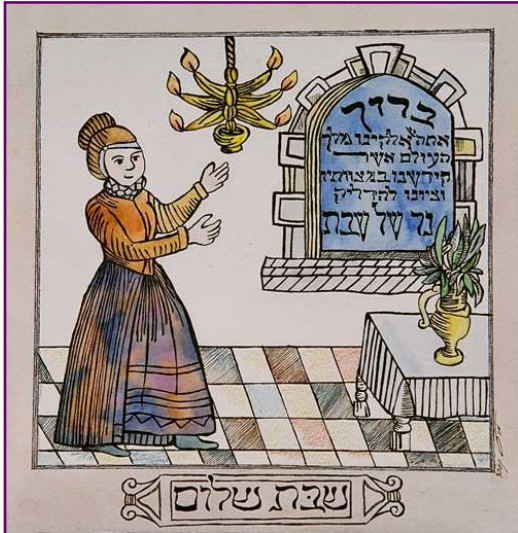 ברוך
אתה אלקינו מלך
העולם אשר
קידשנו במצוותיו
וציונו להדליק
נר של שבת
שבת שלום